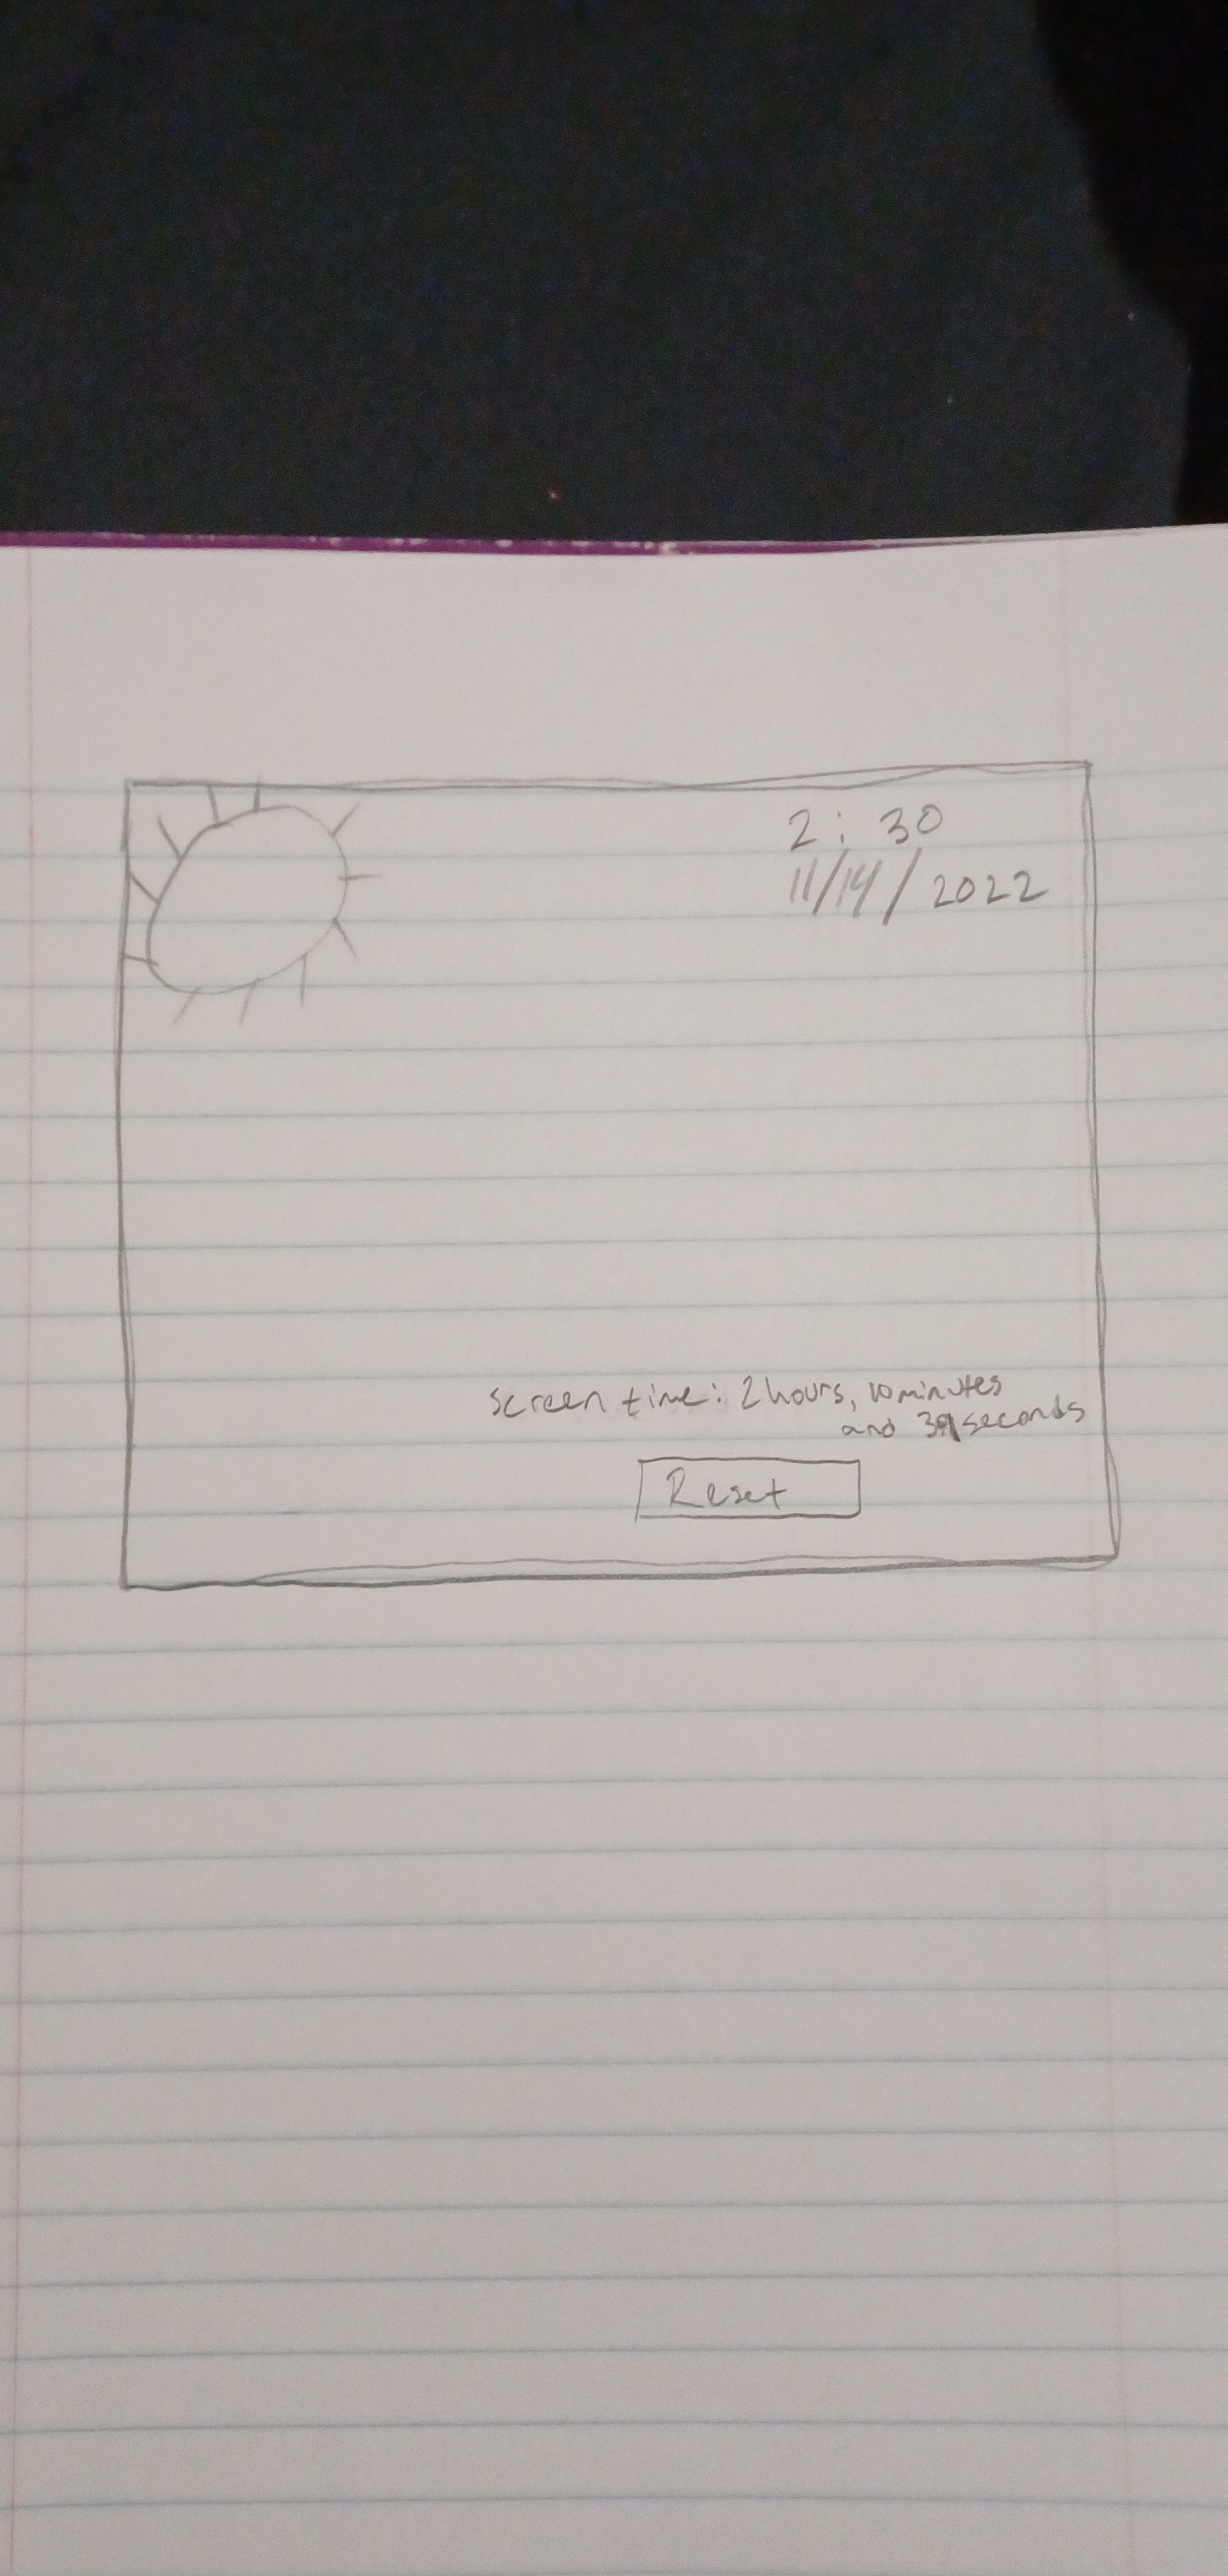 2: 30
11/14/2022
screen time: 2 hours, 10 minutes
and seconds
Reset